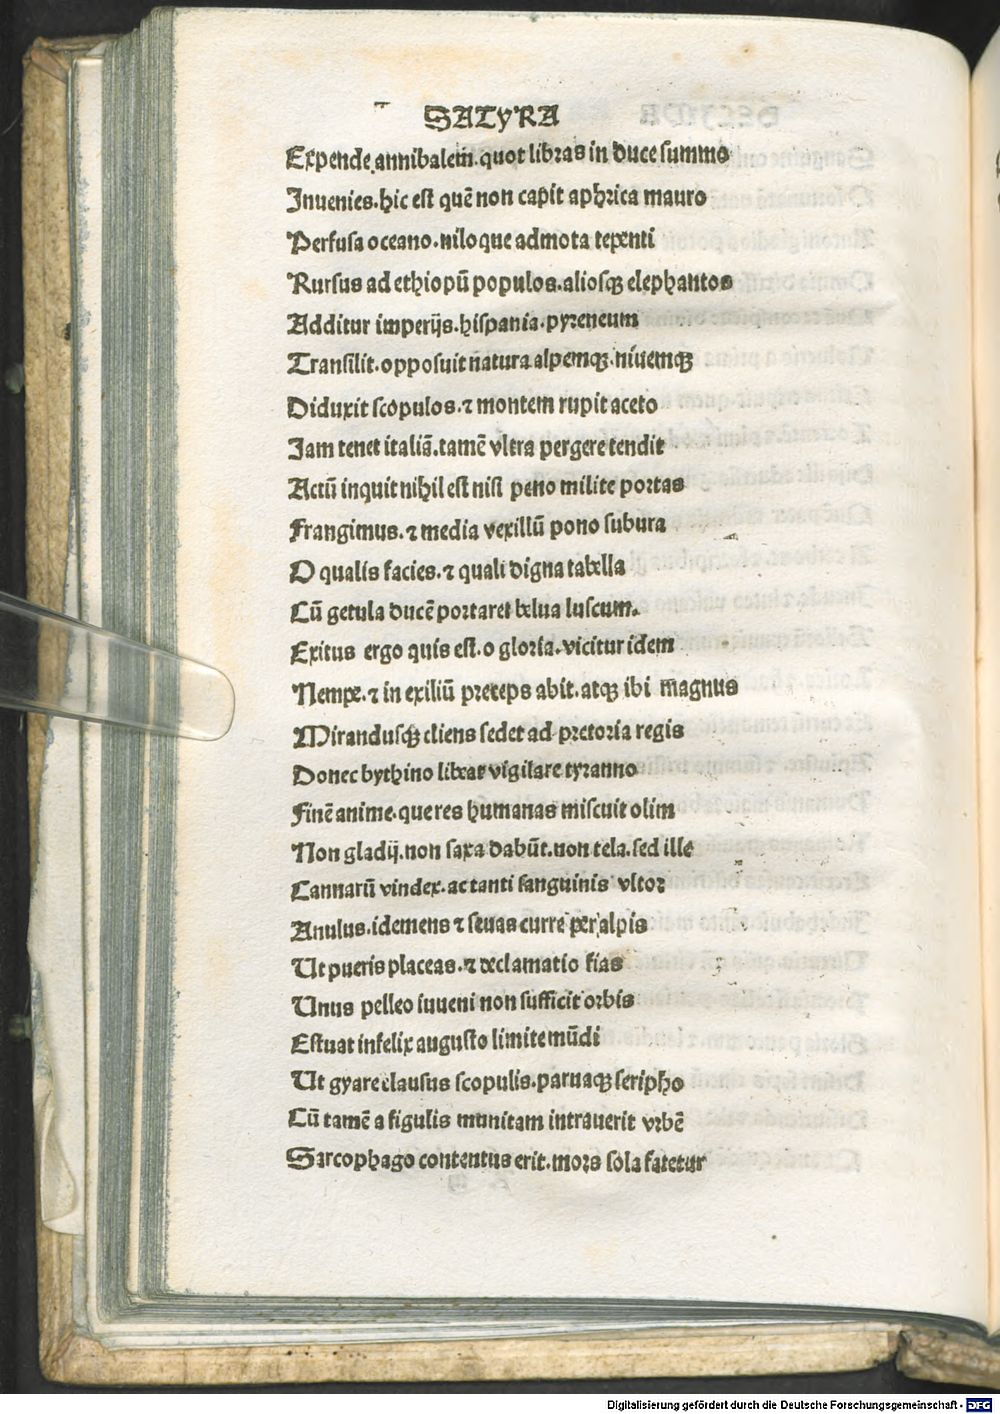 SATYRA
Expende annibalem̄. quot libras in duce summo
Inuenies. hic est quē non capit aphrica mauro
Perfusa oceano. niloque admota tepenti
Rursus ad ethiopū populos. aliosqꝫ elephantos
Additur imperijs. hispania. pyreneum
Transilit. opposuit natura alpemqꝫ. niuemqꝫ
Diduxit scopulos. ⁊ montem rupit aceto
Jam tenet italiā. tamē vltra pergere tendit
Actū inquit nihil est nisi peno milite portas
Frangimus. ⁊ media vexillū pono subura
O qualis facies. ⁊ quali digna tabella
Cū getula ducē portaret belua luscum.
Exitus ergo quis est. o gloria. vicitur idem
Nempe. ⁊ in exiliū preceps abit. atqꝫ ibi magnus
Mirandusqꝫ cliens sedet ad pretoria regis
Donec bythino libeat vigilare tyranno
Finē anime. que res humanas miscuit olim
Non gladij. non saxa dabūt. non tela. sed ille
Cannarū vindex. ac tanti sanguinis vltor
Anulus. i demens ⁊ seuas curre per alpis
Ut pueris placeas. ⁊ declamatio fias
Unus pelleo iuueni non sufficit orbis
Estuat infelix augusto limite mūdi
Ut gyare clausus scopulis. paruaqꝫ seripho
Cū tamē a figulis munitam intrauerit vrbē
Sarcophago contentus erit. mors sola fatetur
Digitalisierung gefördert durch die Deutsche Forschungsgemeinschaft - DFG